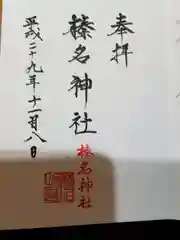 奉拝
榛名神社
榛名神社
平成二十九年十一月八日